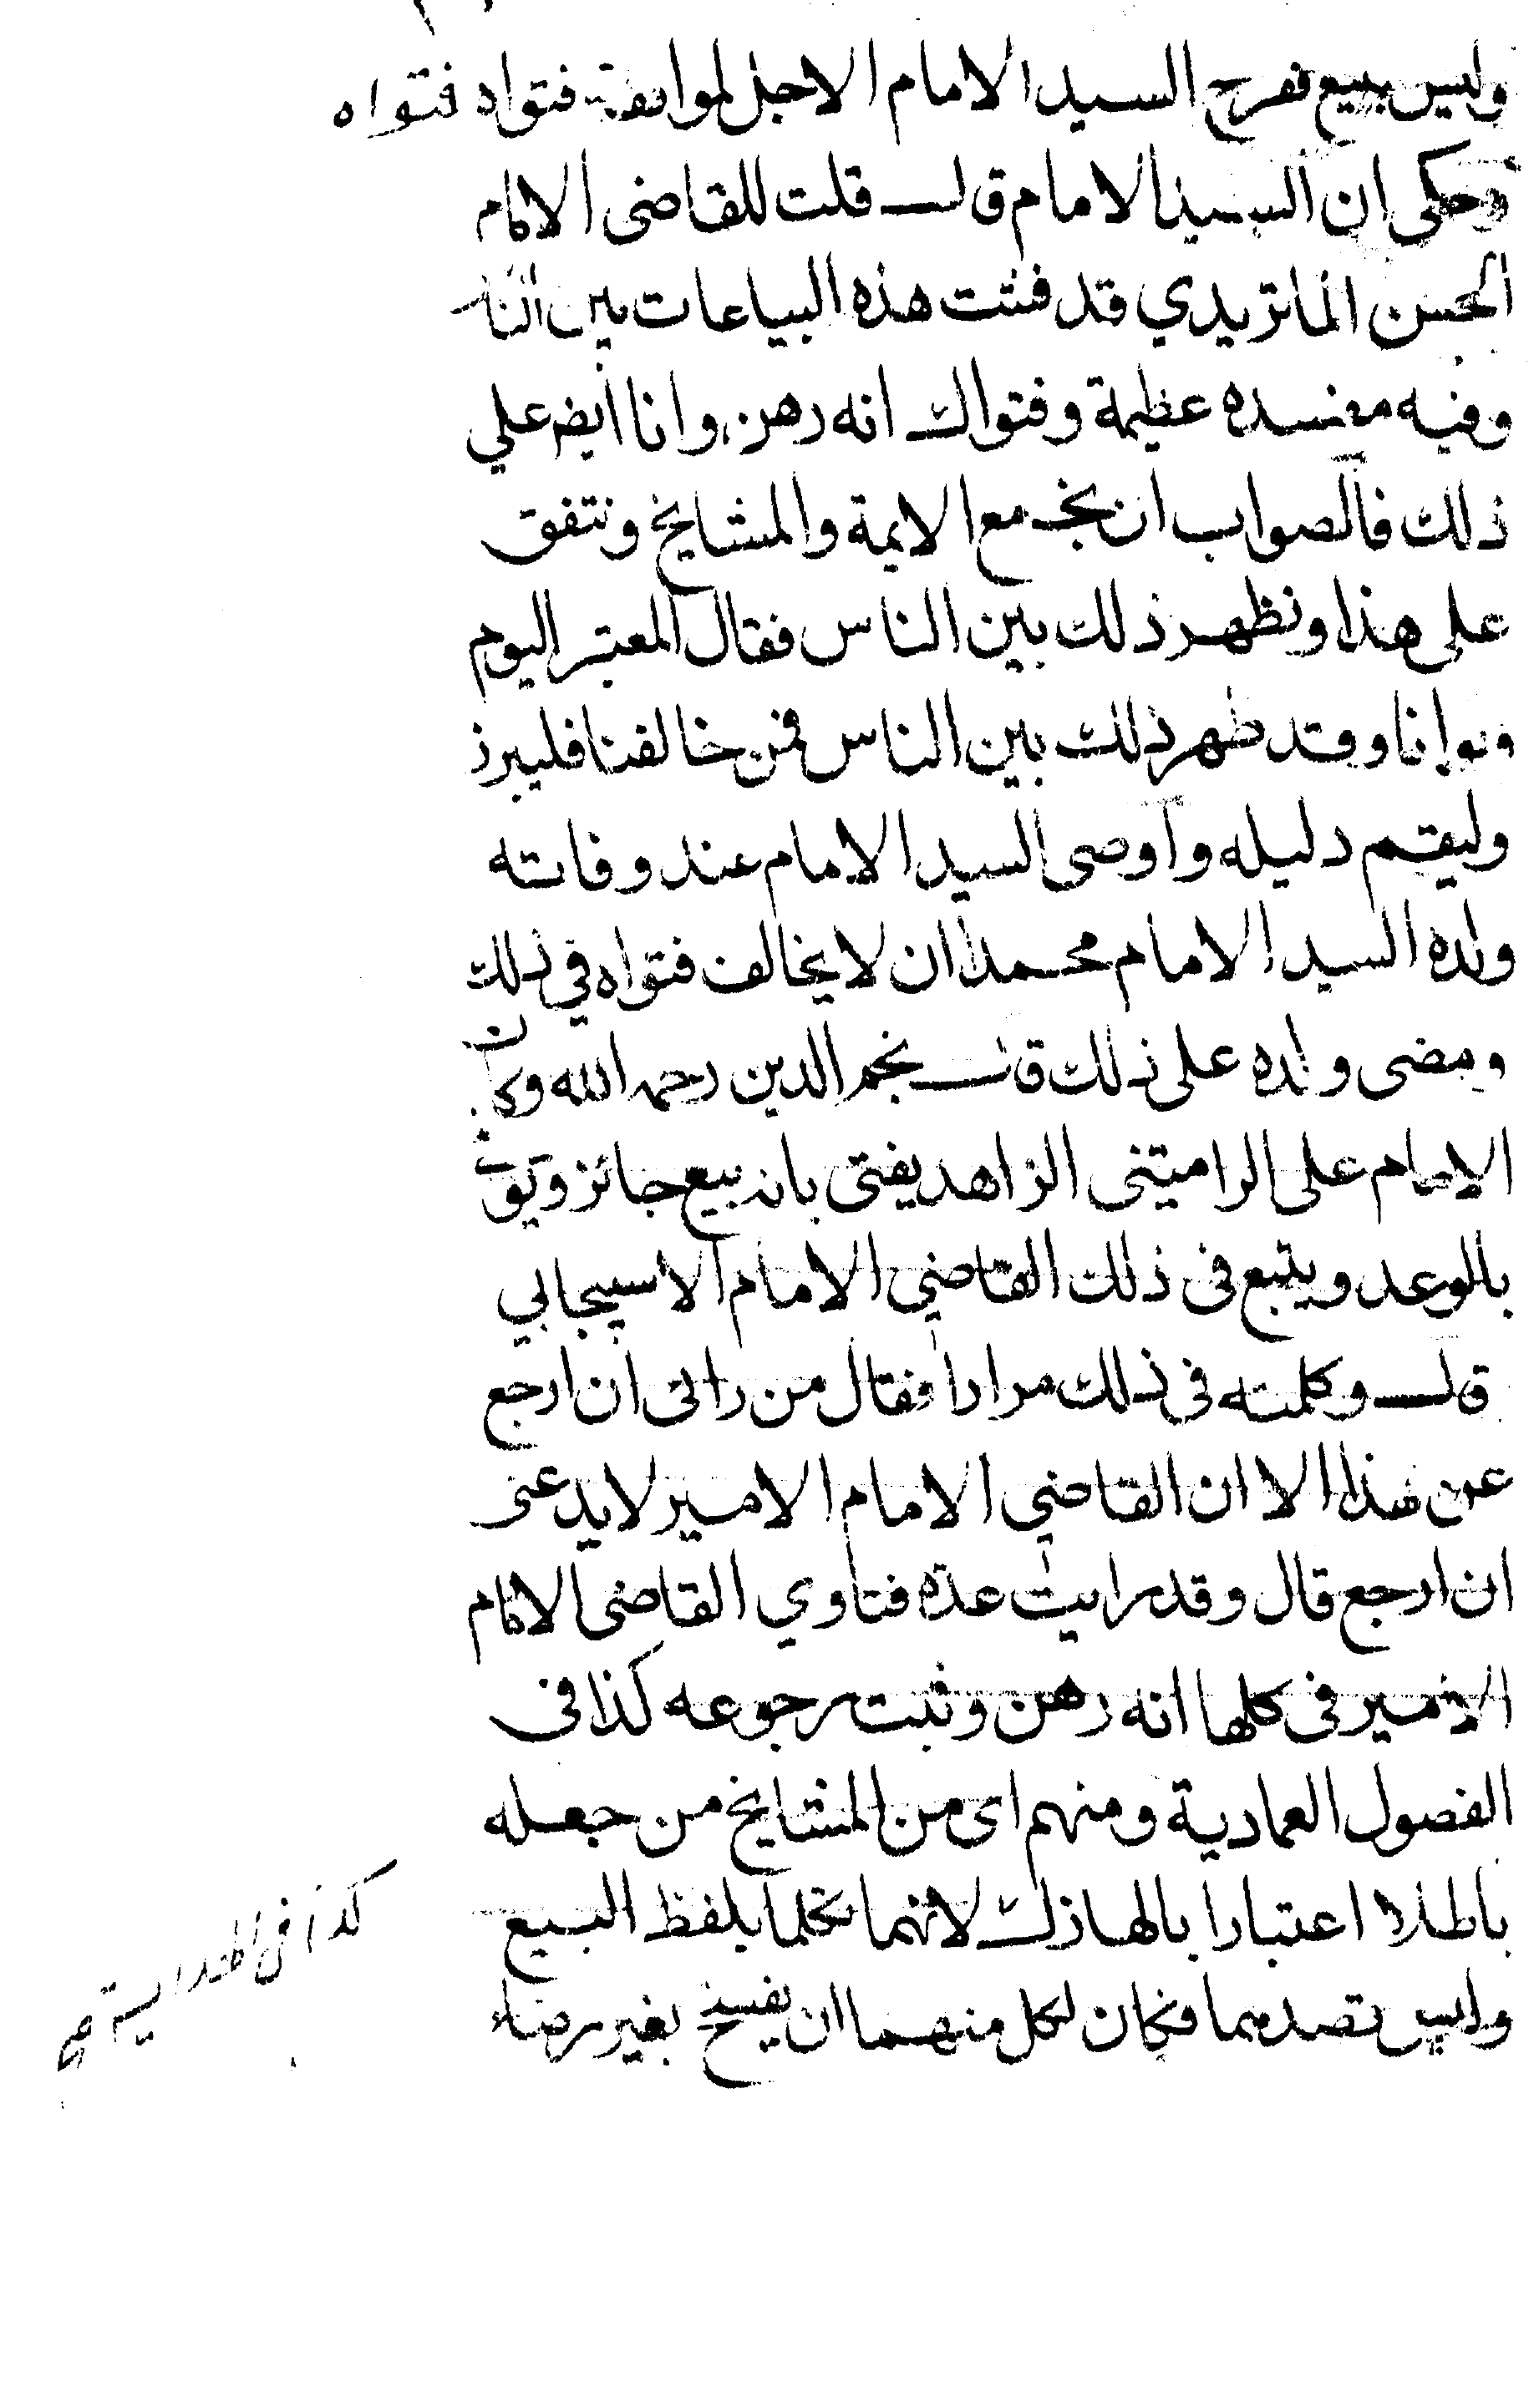 وليس ببيع ففرح السيد الامام الاجل لموافقة فتواه فتواه
وحكى ان السيد الامام قال قلت للقاضى الامام
الحسن الماتريدي قد فشت هذه البياعات بين الناس
وفيه مفسده عظيمة وفتواك انه رهن وانا ايضا علي
ذلك فالصواب ان نجمع الايمة والمشايخ ونتفق
على هذا ونظهر ذلك بين الناس فقال المعتبر اليوم
فتوانا وقد ظهر ذلك بين الناس فمن خالفنا فليبرز
وليقم دليله واوصى السيد الامام عند وفاته
ولده السيد الامام محمدا ان لا يخالف فتواه في ذلك
ومضى ولده على ذلك قال نجم الدين رحمه الله وكان
الامام على الراميتنى الزاهد يفتى بانه بيع جائز ويوفى
بالوعد ويتبع فى ذلك القاضي الامام الاسبيجابي
قال وكلمته فى ذلك مرارا فقال من رائى ان ارجع
عن هذا الا ان القاضي الامام الامير لا يدعنى
ان ارجع قال وقد رايت عدة فتاوي القاضى الامام
الامير فى كلها انه رهن وثبت رجوعه كذا فى
الفصول العمادية ومنهم اى من المشايخ من جعله
باطلا اعتبارا بالهازل لانهما تكلما بلفظ البيع
وليس قصدهما فكان لكل منهما ان يفسخ بغير رضاء
كذا فى الهداية